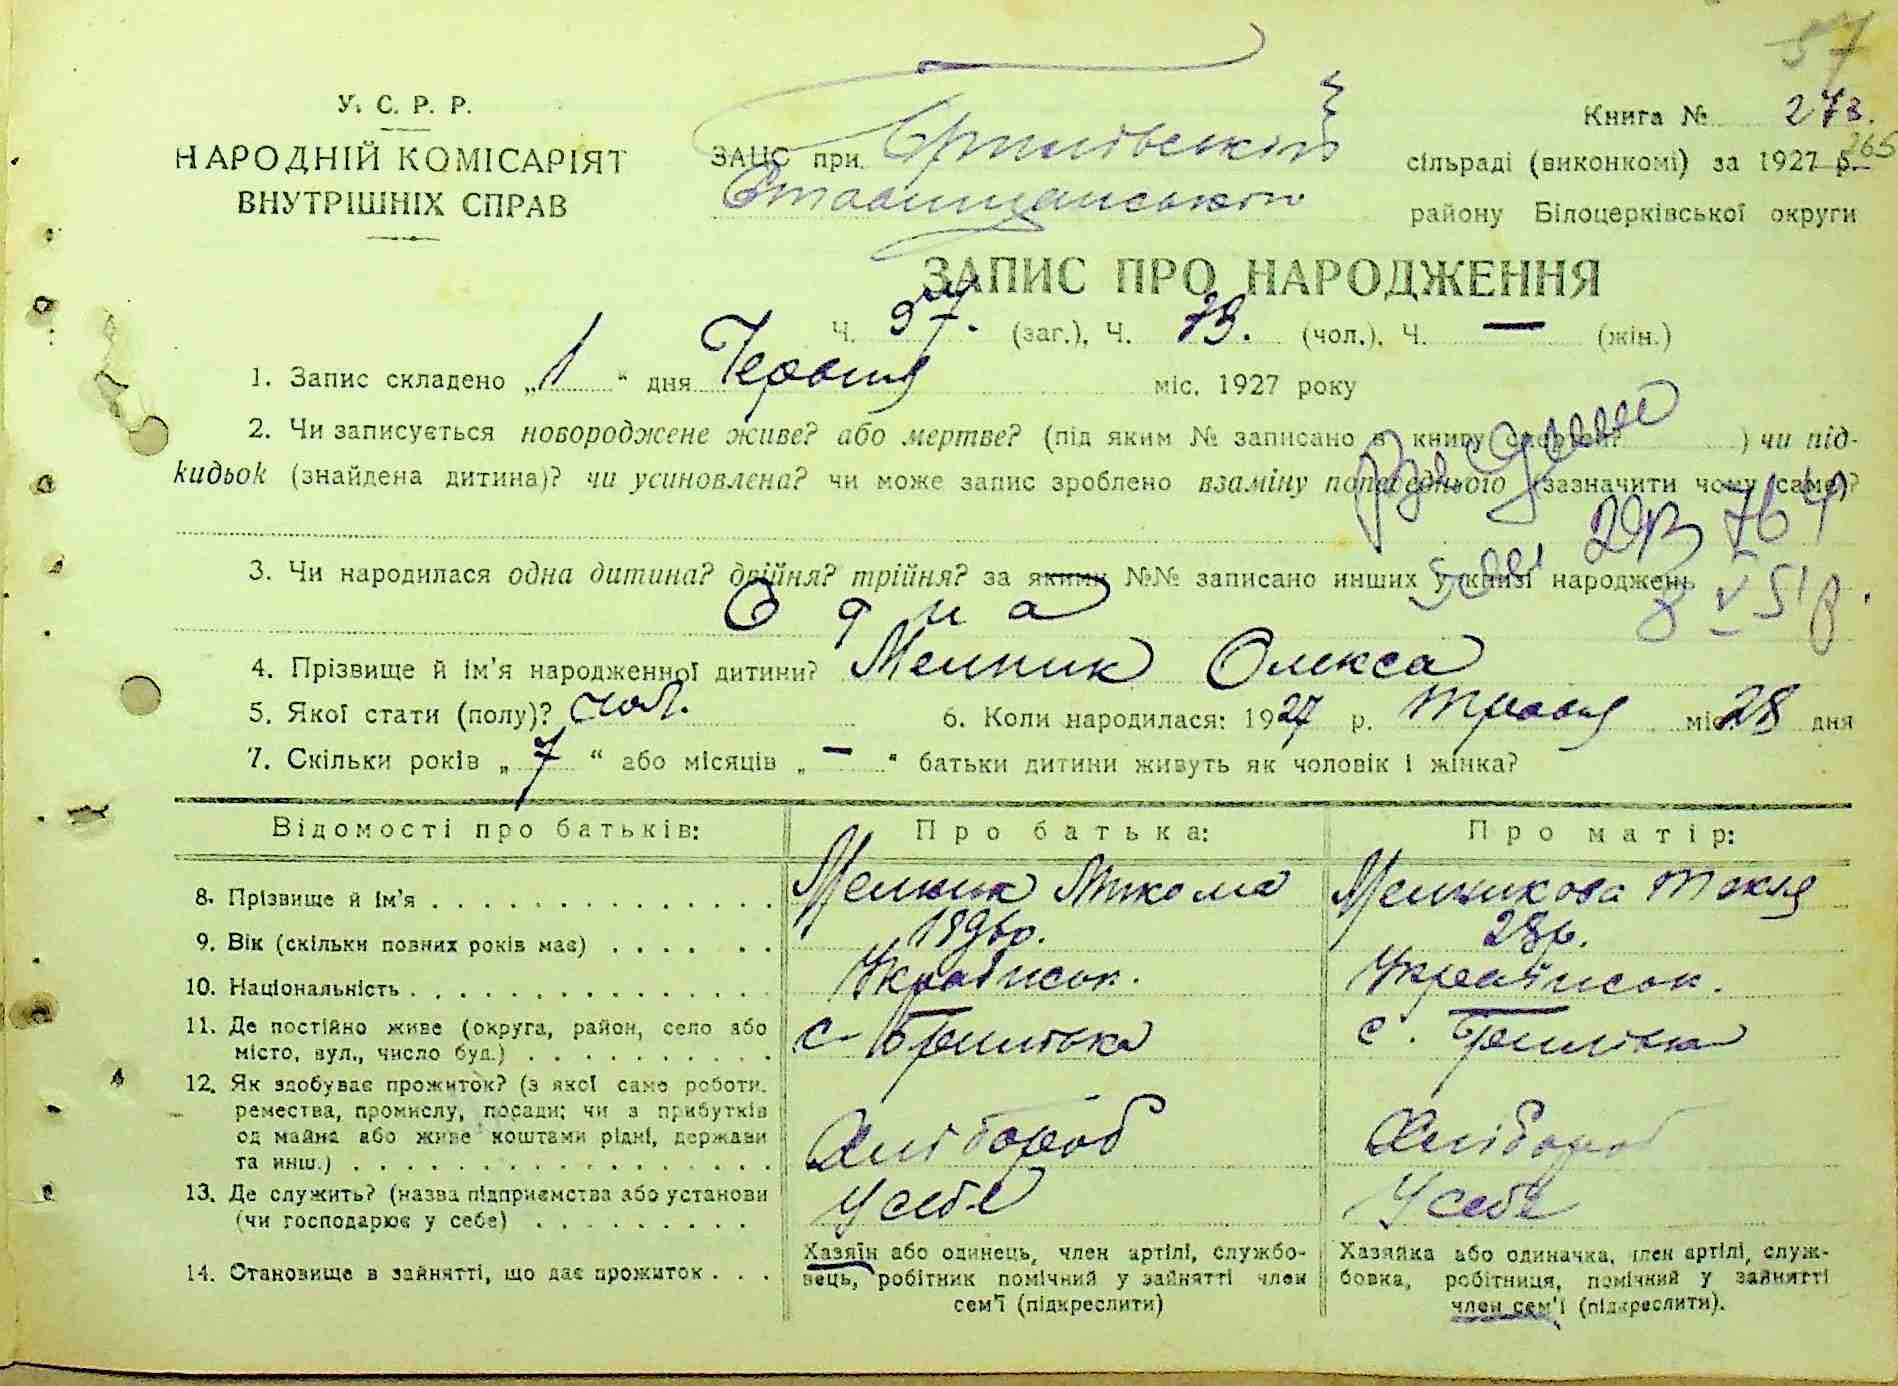 57
У. С. Р. Р.
НАРОДНІЙ КОМІСАРІЯТ
ВНУТРІШНІХ СПРАВ
Книга № 273.
265
ЗАЦС при сільраді (виконкомі) за 1927 р.
Ставищанській району Білоцерківської округи
ЗАПИС ПРО НАРОДЖЕННЯ
Ч. 57. (заг.), Ч. (чол.), Ч. — (жін.)
1. Запис складено „ 1 “ дня Червня міс. 1927 року
2. Чи записується новороджене живе? або мертве? (під яким № записано в книгу ) чи під-
кидьок (знайдена дитина)? чи усиновлена? чи може запис зроблено взаміну попереднього (зазначити чому саме)?
3. Чи народилася одна дитина? двійня? трійня? за якими №№ записано инших у книзі народжень
Одна
4. Прізвище й ім'я народженної дитини? Мелник Олекса
5. Якої стати (полу)? чол. 6. Коли народилася: 1927 р. Травня міс. 28 дня
7. Скільки років „ 7 “ або місяців „ — “ батьки дитини живуть як чоловік і жінка?
Відомості про батьків: Про батька: Про матір:
8. Прізвище й ім'я Мелник Микола Мелникова Текля
9. Вік (скільки повних років має) 28р.
10. Національність Українськ. Українськ.
11. Де постійно живе (округа, район, село або
місто, вул., число буд.) с. с.
12. Як здобуває прожиток? (з якої саме роботи.
ремества, промислу, посади; чи з прибутків
од майна або живе коштами рідні, держави
та инш.) Хлібороб Хлібороб
13. Де служить? (назва підприємства або установи
(чи господарює у себе) У себе У себе
14. Становище в зайнятті, що дає прожиток . . .
Хазяїн або одинець, член артілі, службо-
вець, робітник помічний у зайнятті член
сем'ї (підкреслити)
Хазяйка або одиначка, член артілі, служ-
бовка, робітниця, помічний у зайнятті
член сем'ї (підкреслити).